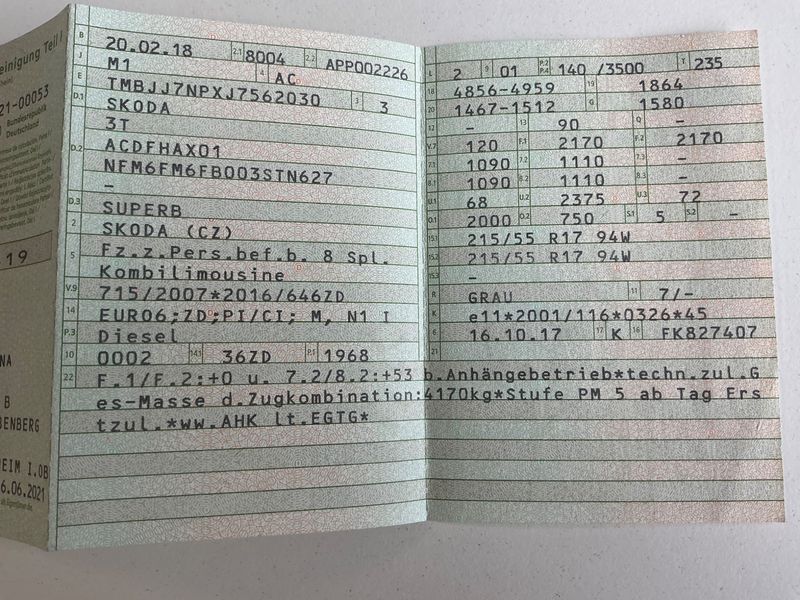 einigung Teil I
21-00053
Bundesrepublik
Deutschland
19
NA
B
BENBERG
EIM I.OB
6.06.2021
B 20.02.18 2.1 8004 2.2 APP002226
J M1 4 AC
E TMBJJ7NPXJ7562030 3 3
D.1 SKODA
3T
D.2 ACDFHAX01
NFM6FM6FB003STN627
–
D.3 SUPERB
2 SKODA (CZ)
5 Fz.z.Pers.bef.b. 8 Spl.
Kombilimousine
V.9 715/2007*2016/646ZD
14 EURO6;ZD;PI/CI; M, N1 I
P.3 Diesel
10 0002 14.1 36ZD P.1 1968
L 2 9 01 P.2 P.4 140 /3500 T 235
18 4856-4959 19 1864
20 1467-1512 G 1580
12 – 13 90 Q –
V.7 120 F.1 2170 F.2 2170
7.1 1090 7.2 1110 7.3 –
8.1 1090 8.2 1110 8.3 –
U.1 68 U.2 2375 U.3 72
O.1 2000 O.2 750 S.1 5 S.2 –
15.1 215/55 R17 94W
15.2 215/55 R17 94W
15.3 –
R GRAU 11 7/–
K e11*2001/116*0326*45
6 16.10.17 17 K 16 FK827407
21
22 F.1/F.2:+0 u. 7.2/8.2:+53 b.Anhängebetrieb*techn.zul.G
es-Masse d.Zugkombination:4170kg*Stufe PM 5 ab Tag Ers
tzul.*ww.AHK lt.EGTG*